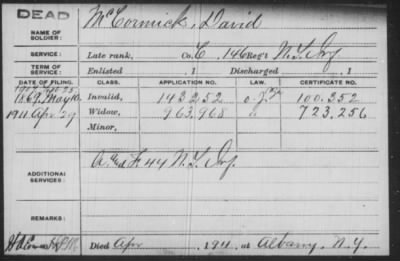 DEAD
McCormick, David
NAME OF
SOLDIER:
SERVICE:
Late rank, Co. C, 146 Reg't N.Y. Inf.
TERM OF
SERVICE:
Enlisted 1 Discharged 1
DATE OF FILING. CLASS. APPLICATION NO. LAW. CERTIFICATE NO.
1907
1869, May 10, Invalid, 143252 100.352
1911 Apr 29 Widow, 963,968 723,256
Minor,
ADDITIONAL
SERVICES:
F 44 N.Y. Inf.
REMARKS:
Died Apr 191 , at Albany, N.Y.